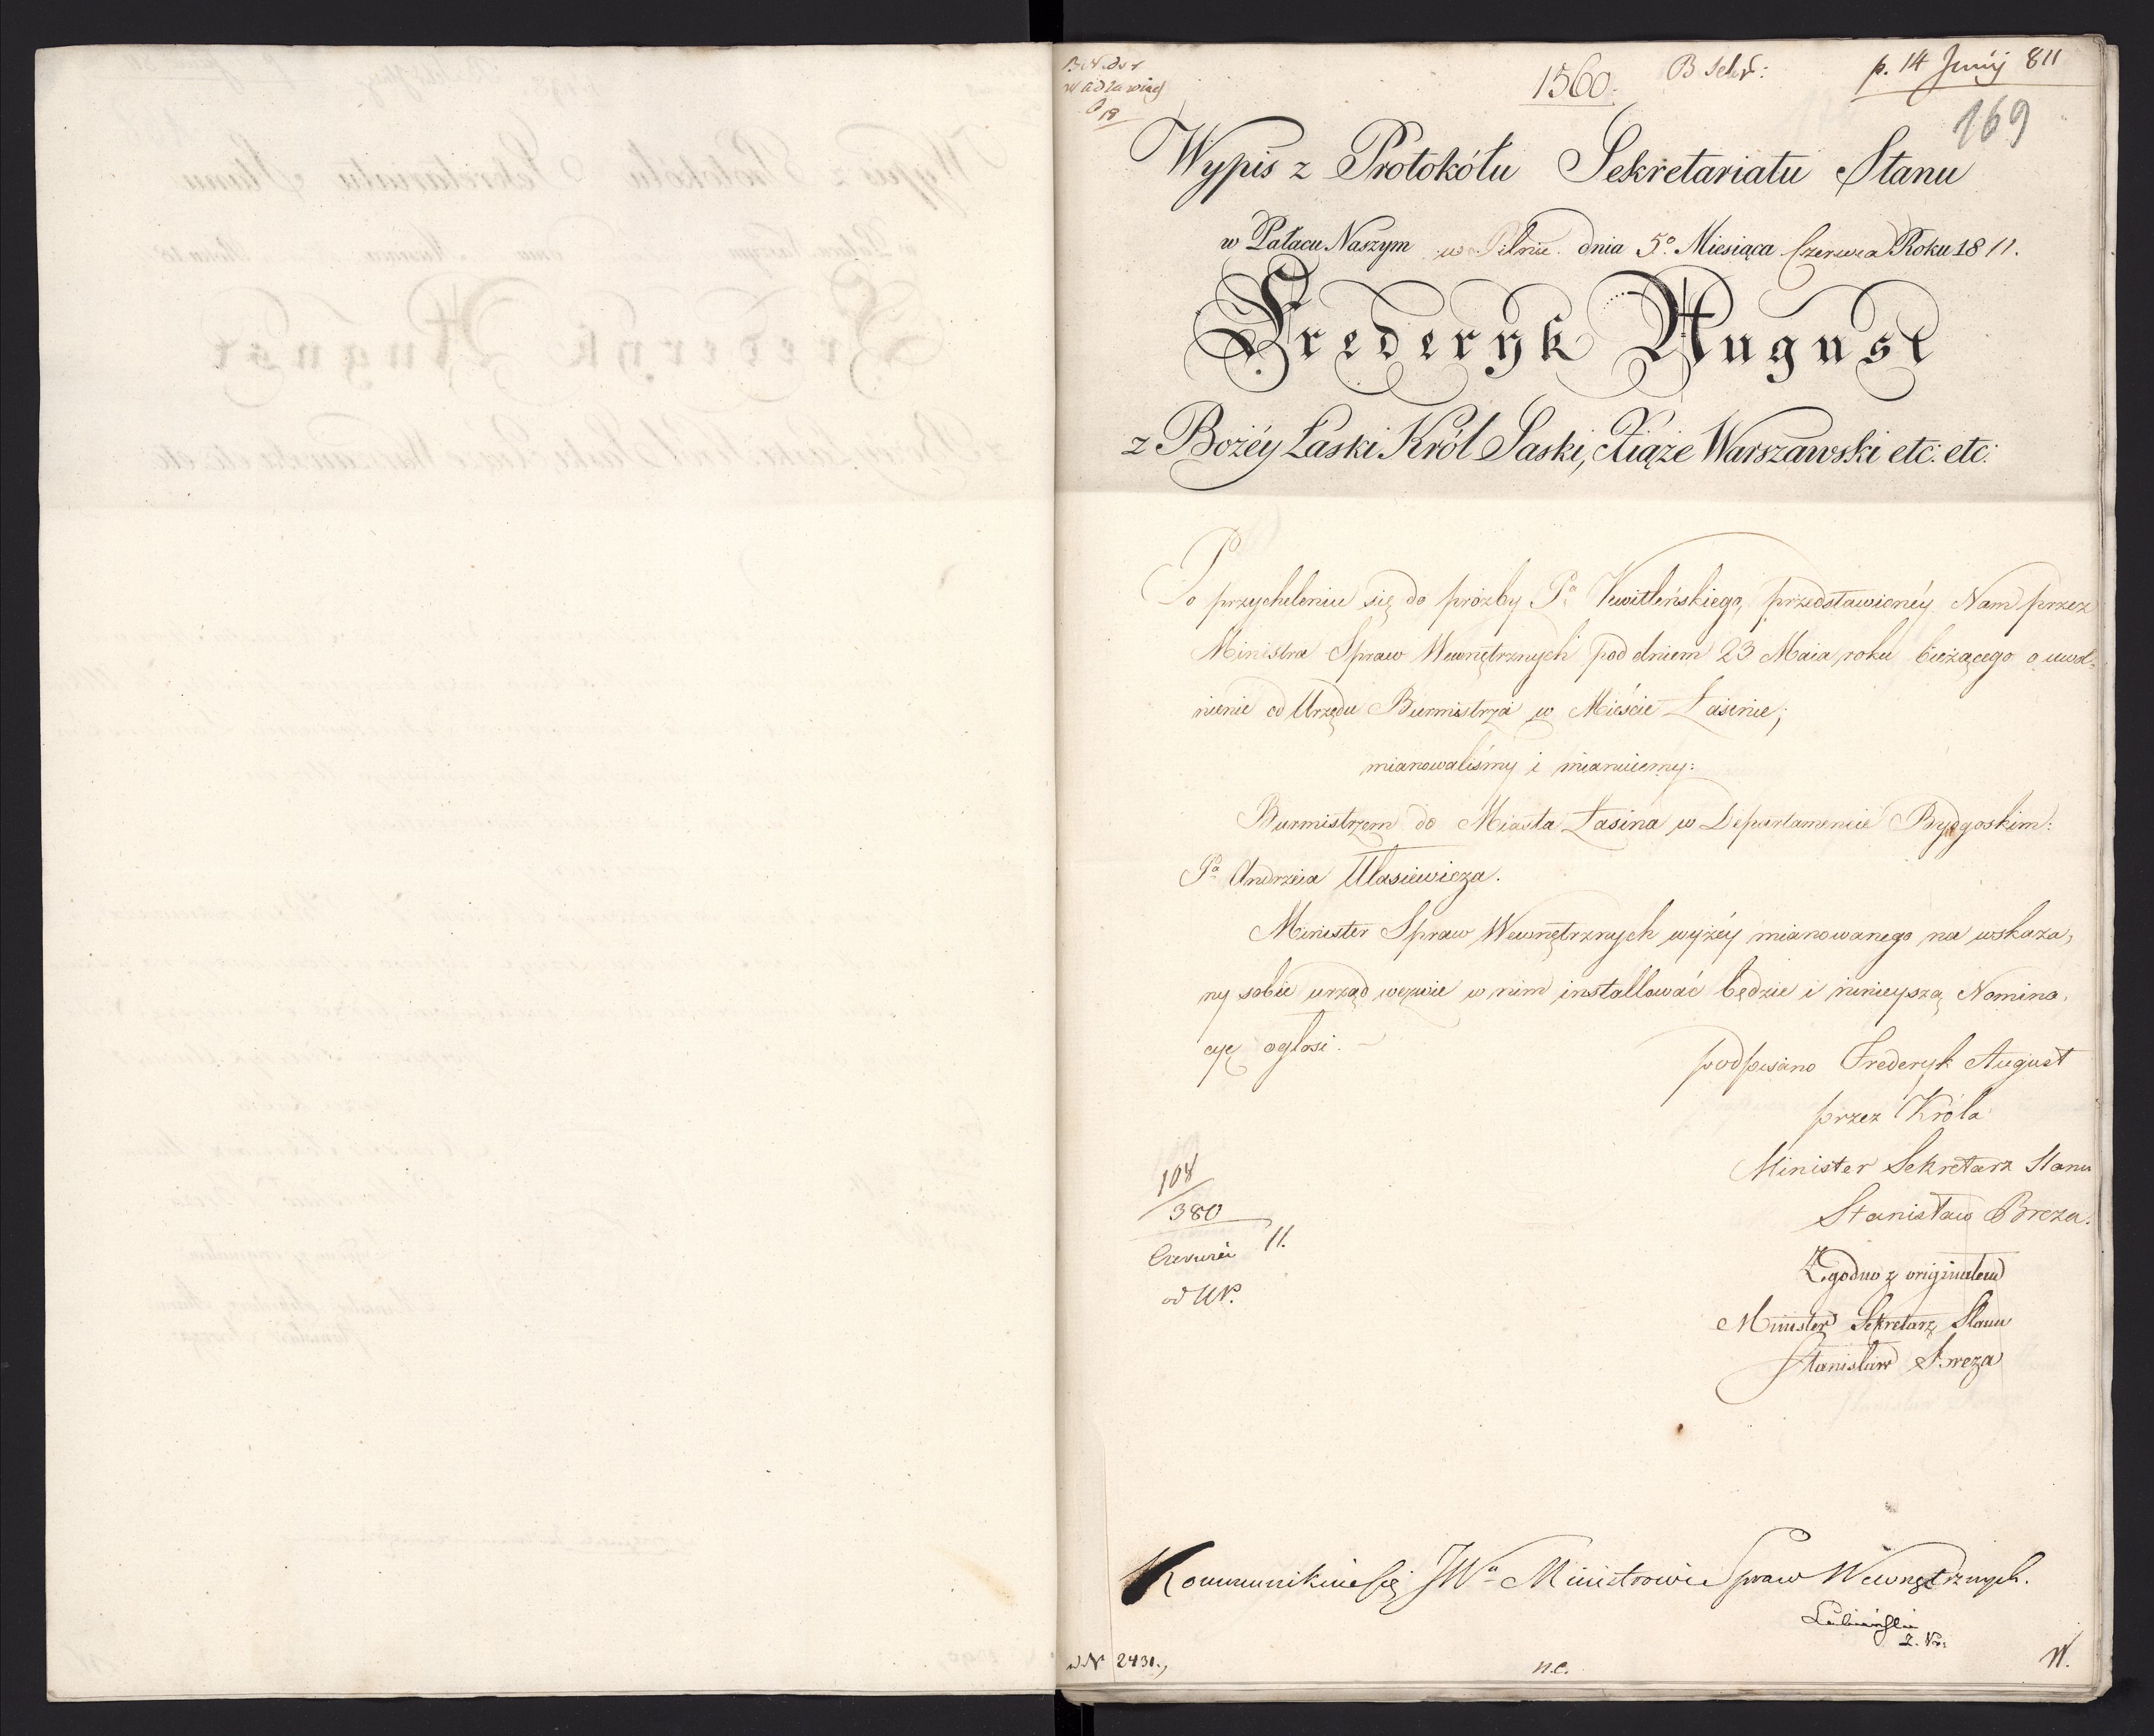 1560.
p. 14 Junij 811
169
Wypis z Protokółu Sekretariatu Stanu
w Pałacu Naszym w Pilnie. dnia 5º Miesiąca Czerwca Roku 1811.
Frederyk August
z Bożéy Łaski Król Saski, Xiąże Warszawski etc: etc:
Po przychyleniu się do prózby Pª Kwitleńskiego, przedstawionéy Nam przez
Ministra Spraw Wewnętrznych pod dniem 23 Maia roku bieżącego o uwol-
nienie od Urzędu Burmistrza w Mieście Łasinie;
mianowaliśmy i mianuiemy:
Burmistrzem do Miasta Łasina w Departamencie Bydgoskim:
Pª Andrzeia Ułasiewicza.
Minister Spraw Wewnętrznych wyżéy mianowanego na wskaza-
ny sobie urząd wezwie w nim installować będzie i ninieyszą Nomina-
cyę ogłosi. —
podpisano Frederyk August
przez Króla
Minister Sekretarz Stanu
Stanisław Breza.
104
380
Czerwca 11.
od UN.
Zgodno z originałem
Minister Sekretarz Stanu
Stanisław Breza
Kommunikuie się JWº Ministrowi Spraw Wewnętrznych.
w N 2431.,
n.c.
W.